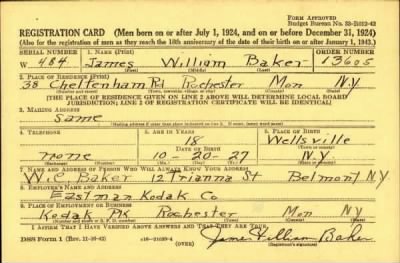 FORM APPROVED
Budget Bureau No. 33-R012-42
REGISTRATION CARD (Men born on or after July 1, 1924, and on or before December 31, 1924)
(Also for the registration of men as they reach the 18th anniversary of the date of their birth on or after January 1, 1943.)
SERIAL NUMBER 1. NAME (Print) ORDER NUMBER
W 484 James William Baker 13605
(First) (Middle) (Last)
2. PLACE OF RESIDENCE (Print)
38 Cheltenham Rd Rochester Mon N.Y.
[THE PLACE OF RESIDENCE GIVEN ON LINE 2 ABOVE WILL DETERMINE LOCAL BOARD
JURISDICTION; LINE 2 OF REGISTRATION CERTIFICATE WILL BE IDENTICAL]
3. MAILING ADDRESS
Same
[Mailing address if other than place indicated on line 2. If same, insert word same]
4. TELEPHONE 5. AGE IN YEARS 6. PLACE OF BIRTH
18 Wellsville
DATE OF BIRTH (Town or county)
none 10-20-27 N.Y.
(Exchange) (Number) (Mo.) (Day) (Yr.) (State or country)
7. NAME AND ADDRESS OF PERSON WHO WILL ALWAYS KNOW YOUR ADDRESS
W.C. Baker 12 Trianna St Belmont N.Y.
8. EMPLOYER'S NAME AND ADDRESS
Eastman Kodak Co
9. PLACE OF EMPLOYMENT OR BUSINESS
Kodak Pk Rochester Mon N.Y.
(Number and street or R. F. D. number) (Town) (County) (State)
I AFFIRM THAT I HAVE VERIFIED ABOVE ANSWERS AND THAT THEY ARE TRUE.
DSS Form 1 (Rev. 11-16-42) (OVER) James William Baker
(Registrant's signature)